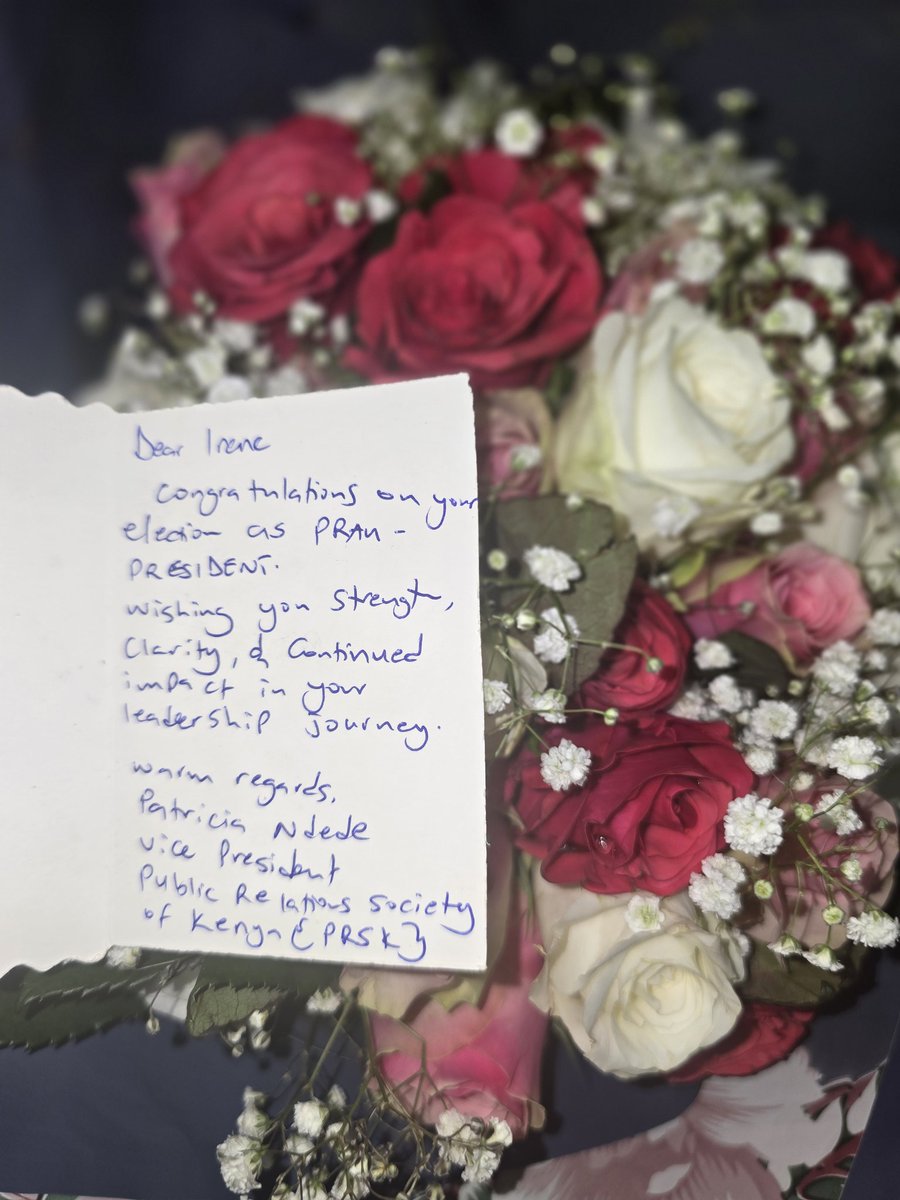 Dear Irene
Congratulations on your
election as PRAU -
PRESIDENT.
wishing you strength,
Clarity, & Continued
impact in your
leadership journey.
warm regards,
Patricia Ndede
vice President
Public Relations Society
of Kenya {PRSK}